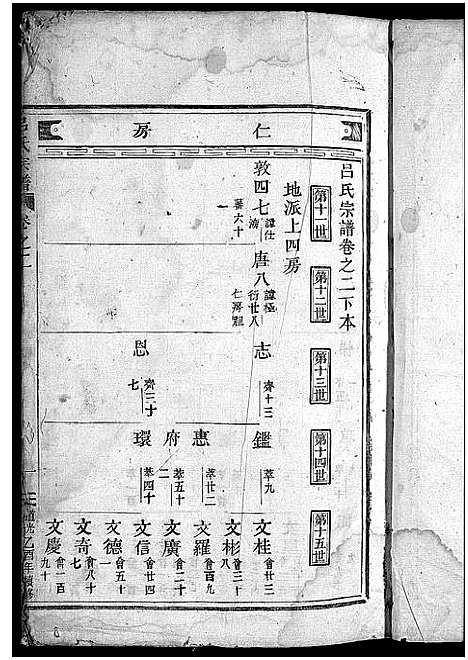 呂氏宗譜卷之二下本
第十一世
第十二世
第十三世
第十四世
第十五世
地派上四房
仁房
敦四七
諱仕
萬六十一
唐八
諱極
行廿八
仁房祖
志
齊十三
恩
齊三十七
鑑
萃九
惠
萃廿二
府
萃五十二
環
萃四十
文桂
會廿三
文彬
會三十一
文羅
會百九
文廣
會二十
文信
會廿四
文德
會五十一
文奇
會八十七
文慶
會一百九十
呂氏宗譜
卷之二
乙酉年續修